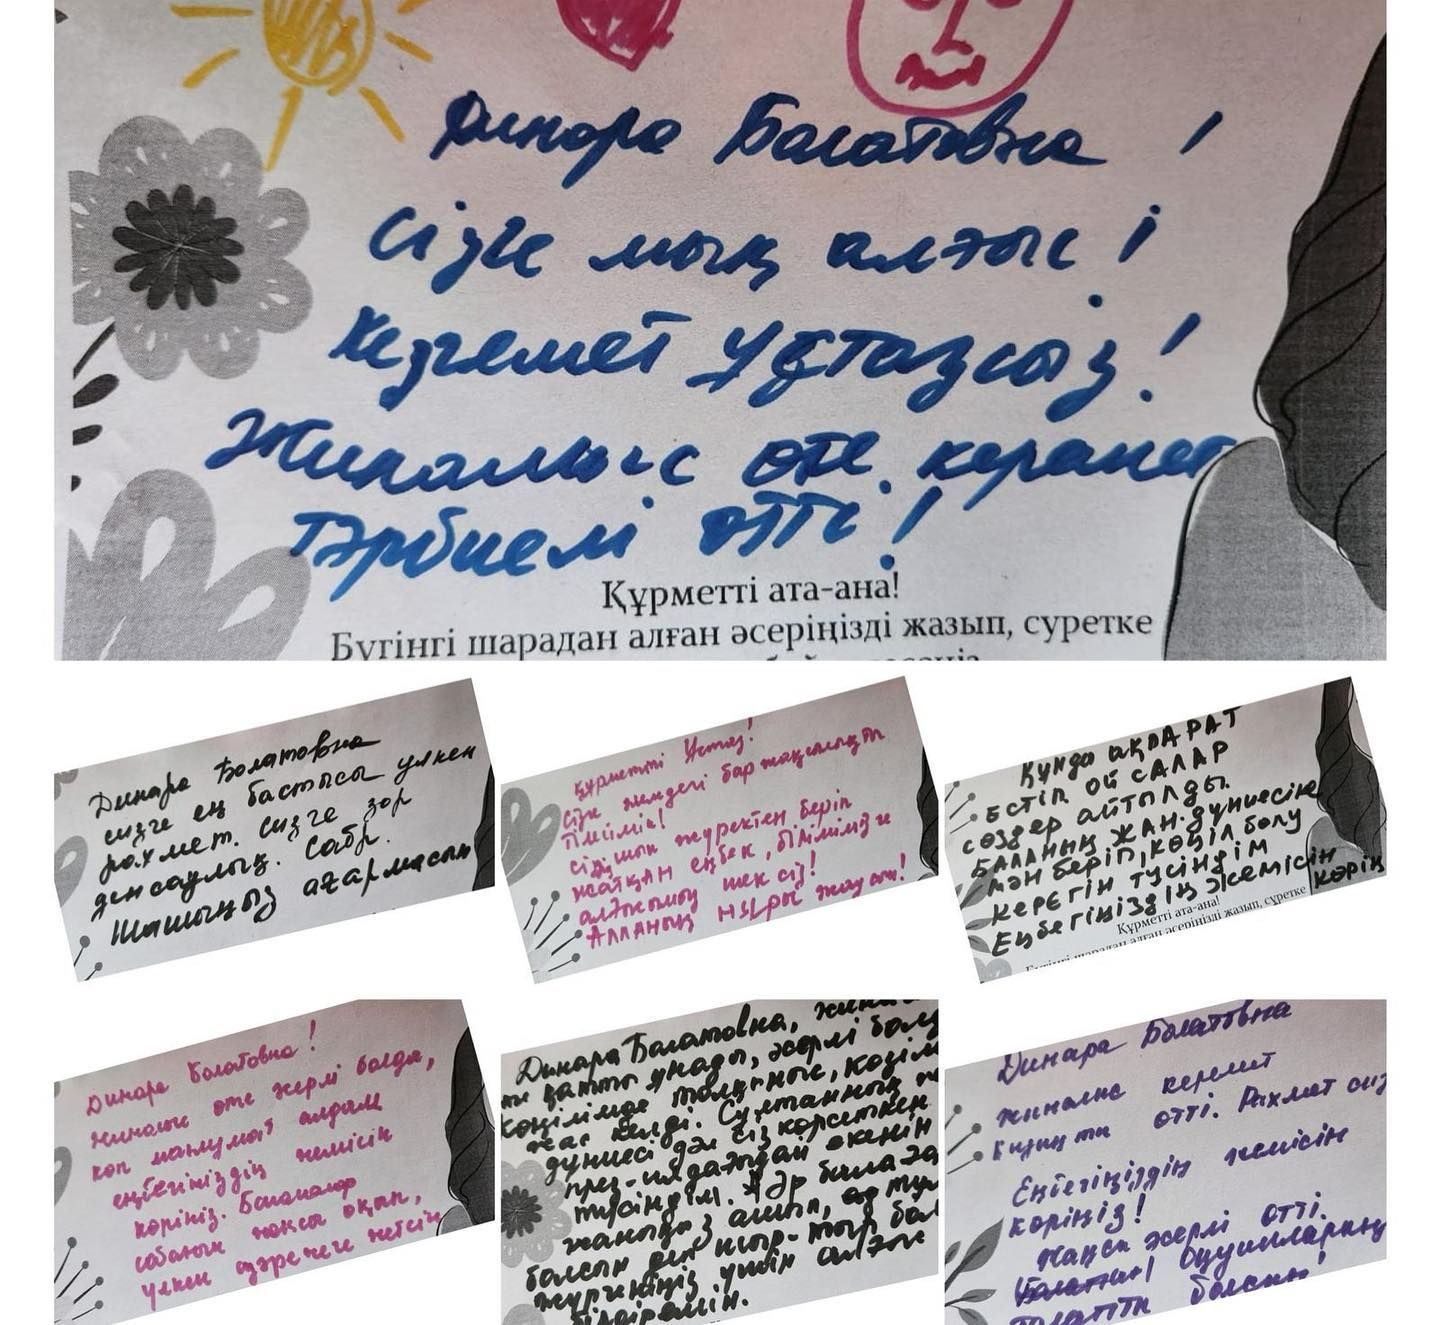 Динара Болатовна!
Сізге мың алғыс!
Керемет ұстазсыз!
Жиналыс өте керемет
тәрбиелі өтті!
Құрметті ата-ана!
Бүгінгі шарадан алған әсеріңізді жазып, суретке
Динара Болатовна
сизге ең бастысы үлкен
рахмет. сизге зор
денсаулық. Сабр.
Шашыңыз ағармасын
Құрметті Ұстаз!
Сізге әлемдегі бар жақсылықты
тілймін!
Сіздің шын жүректен беріп
жатқан еңбек, біліміңізге
алғысымыз шексіз!
Алланың нұры жаусын!
Құнды ақпарат
естіп ой салар
сөздер айтылды.
Баланың жан-дүниесіне
мән беріп, көңіл бөлу
керегін түсіндім
Еңбегіңіздің жемісін көрің
Құрметті ата-ана!
Бүгінгі шарадан алған әсеріңізді жазып, суретке
Динара Болатовна!
Жиналыс өте әсерлі болды,
көп мағлұмат алдым
еңбегіңіздің жемісін
көріңіз. Балалар
сабағын жақсы оқып,
үлкен дәрежеге жетсін
Динара Болатовна, жинал
қатты ұнады, әсерлі болд
көңілімде толқыныс, көзім
жас келді. Сұлтанның
дүниесі дәл сіз көрсеткен
екенін
түсіндім. Әр бала
жаныңыз ашып,
болсын деп шыр-пыр бол
жүргеніңіз үшін алғыс
білдіремін.
Динара Болатовна
жиналыс керемет
өтті. Рахмет сіз
Еңбегіңіздің жемісін
көріңіз!
Жақсы әсерлі өтті.
Оқушыларың
болсын!